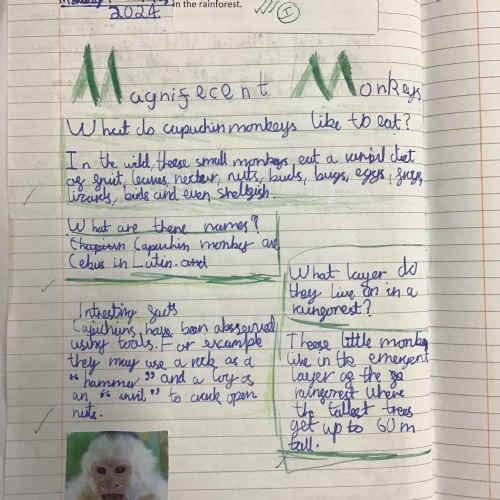 2024
in the rainforest.
Magnifecent Monkeys
What do capuchin monkeys like to eat?
In the wild, these small monkeys, eat a varied diet
of fruit, leaves, necter, nuts, buds, bugs, eggs, frogs,
lizards, birds and even shellfish.
What are there names?
Capuchin monkey are
Cebus in Latin. and
Intresting facts
Capuchins, have been abserved
using tools. For example
they may use a rock as a
"hammer" and a log as
an "anvil" to crack open
nuts.
What layer do
they live on in a
rainforest?
These little monkey
live in the emergent
layer of the
rainforest where
the tallest trees
get up to 60m
tall.